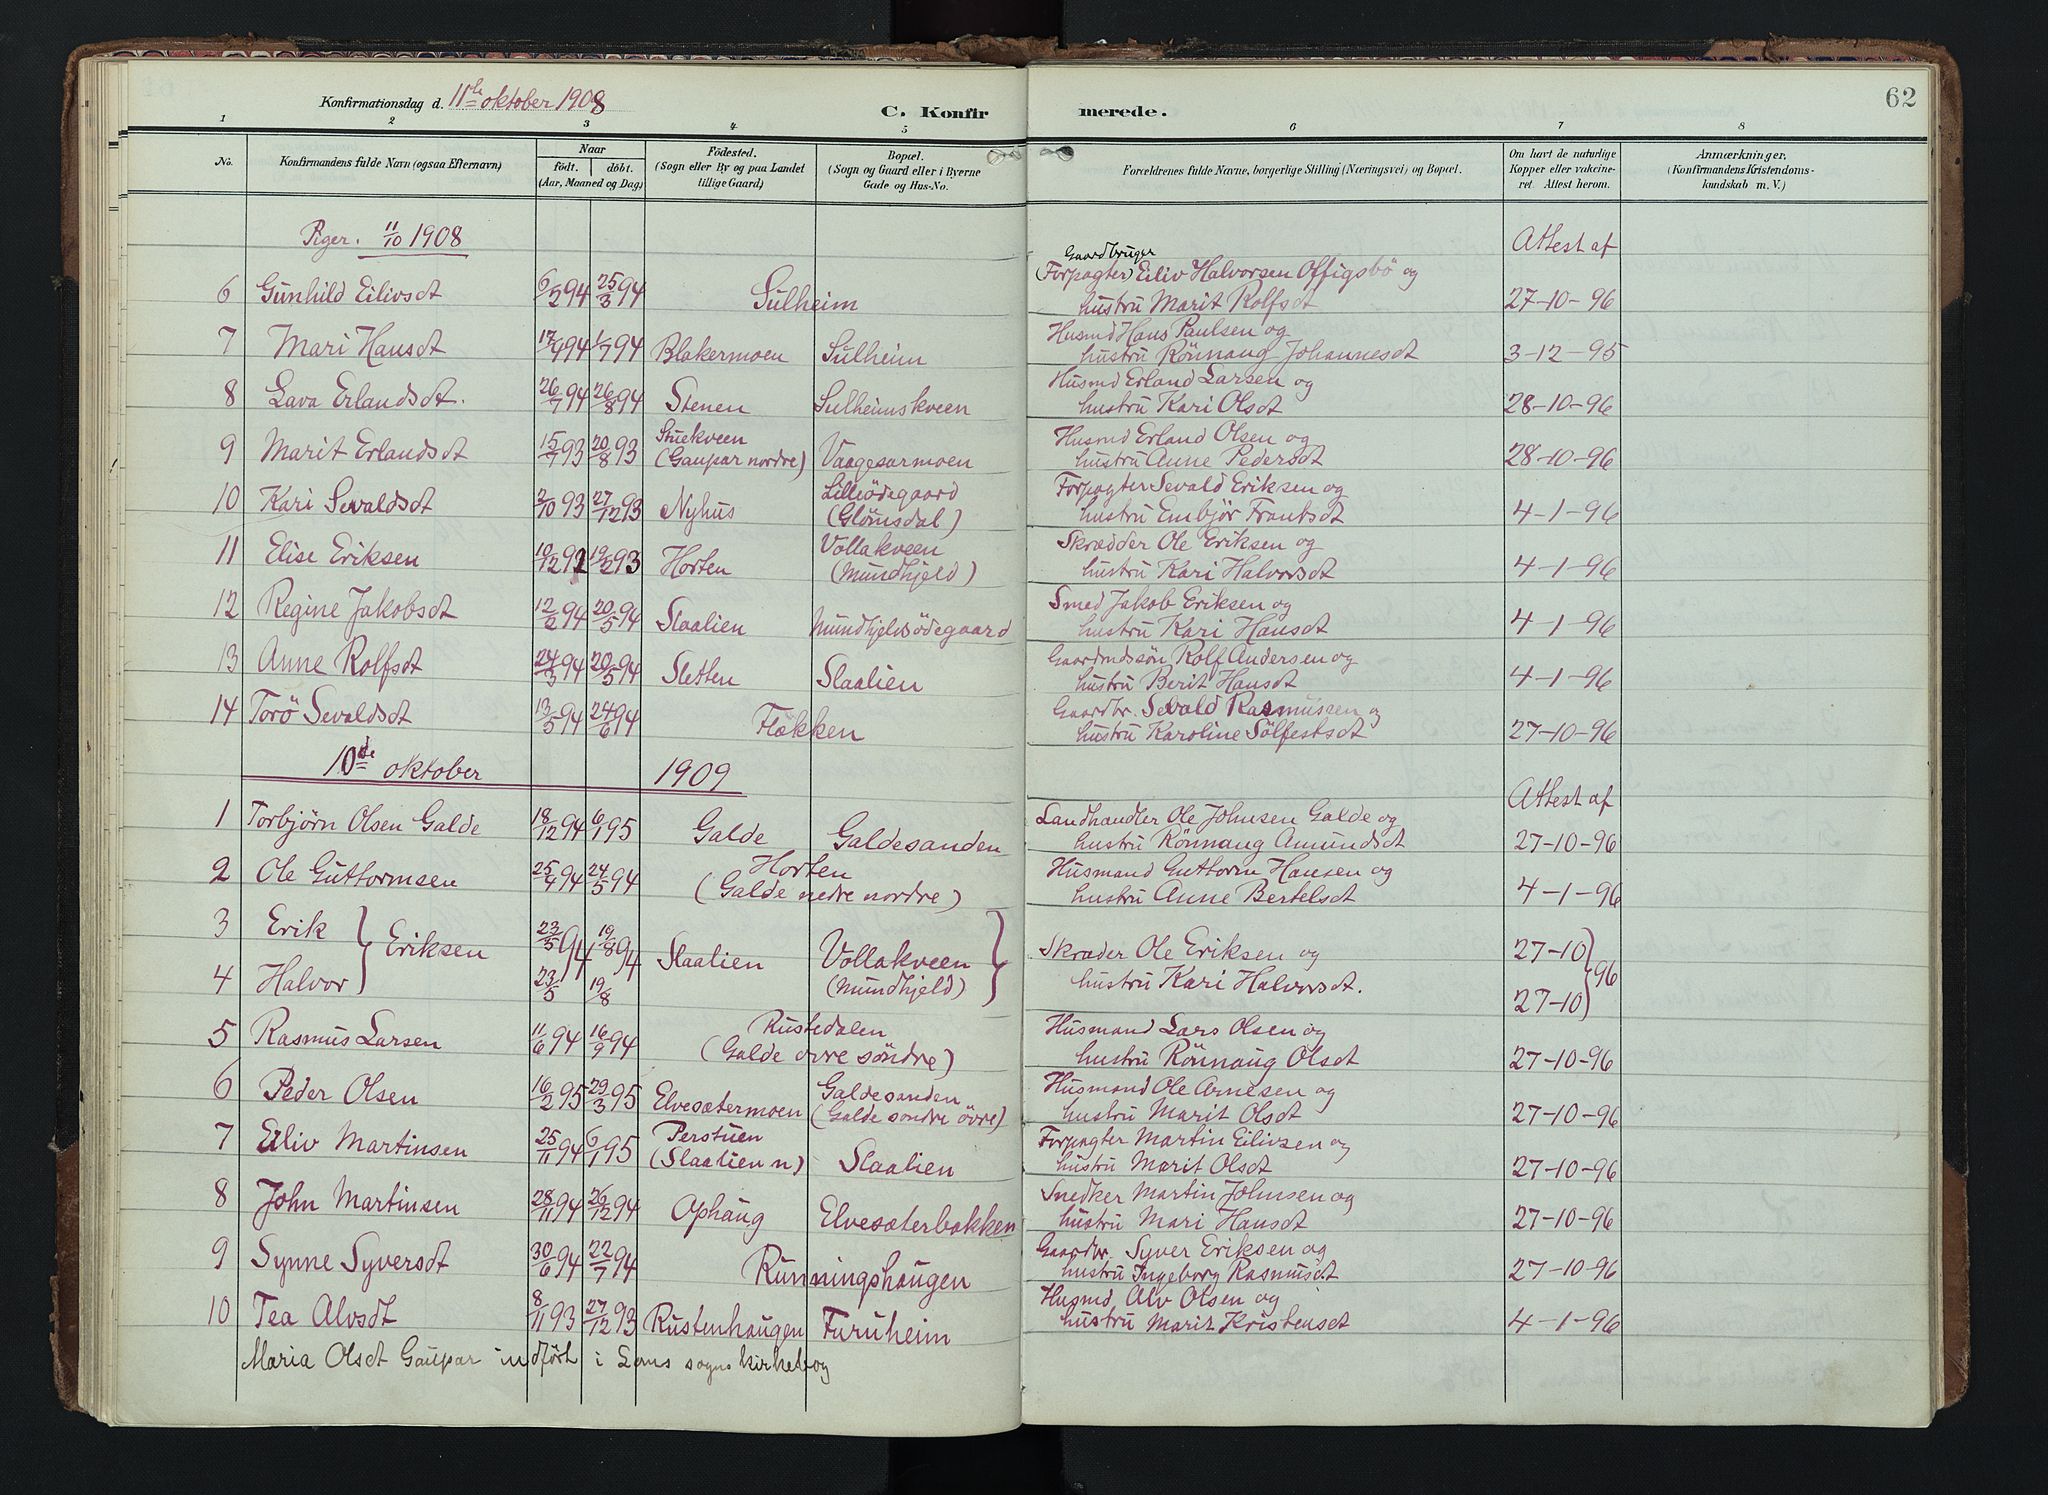 62
Konfirmationsdag d. 11te oktober 1908
C. Konfirmerede.
1 2 3 4 5 6 7 8
No. Konfirmandens fulde Navn (ogsaa Efternavn) Naar født. døbt. (Aar, Maaned og Dag) Fødested. (Sogn eller By og paa Landet tillige Gaard) Bopæl. (Sogn og Gaard eller i Byerne Gade og Hus-No. Forældrenes fulde Navne, borgerlige Stilling (Næringsvei) og Bopæl. Om havt de naturlige Kopper eller vakcineret. Attest herom. Anmærkninger. (Konfirmandens Kristendomskundskab m. V.)
Piger. 11/10 1908 Attest af
6 Gunhild Eilivsdt 6/2 94 25/3 94 Sulheim Gaardbruger (Forpagter) Eiliv Halvorsen Offigsbö og
hustru Marit Rolfsdt 27-10-96
7 Mari Hansdt 17/4 94 1/7 94 Blakermoen Sulheim Husmd Hans Paulsen og
hustru Rönnaug Johannesdt 3-12-95
8 Lava Erlandsdt. 26/7 94 26/8 94 Stenen Sulheimskveen Husmd Erland Larsen og
hustru Kari Olsdt 28-10-96
9 Marit Erlandsdt 15/7 93 20/8 93 Stuekveen (Gaupar nordre) Vaagesarmoen Husmd Erland Olsen og
hustru Anne Pedersdt 28-10-96
10 Kari Sevaldsdt 2/10 93 27/12 93 Nyhus Lilleödegaard (Glömsdal) Forpagter Sevald Eriksen og
hustru Embjör Frantsdt 4-1-96
11 Elise Eriksen 10/12 92 19/2 93 Horten Vollakveen (Mundhjeld) Skrædder Ole Eriksen og
hustru Kari Halvorsdt 4-1-96
12 Regine Jakobsdt 12/2 94 20/5 94 Slaalien Mundhjelsödegaard Smed Jakob Eriksen og
hustru Kari Hansdt 4-1-96
13 Anne Rolfsdt 24/3 94 20/5 94 Sletten Slaalien Gaardmdssön Rolf Andersen og
hustru Berit Hansdt 4-1-96
14 Torö Sevaldsdt 13/5 94 24/6 94 Flökken Gaardbr. Sevald Rasmussen og
hustru Karoline Sölfestsdt 27-10-96
10de oktober 1909 Attest af
1 Torbjörn Olsen Galde 18/12 94 6/1 95 Galde Galdesanden Landhandler Ole Johnsen Galde og
hustru Rönnaug Amundsdt 27-10-96
2 Ole Guttormsen 25/4 94 24/5 94 Horten (Galde nedre nordre) Husmand Guttorm Hansen og
hustru Anne Bertelsdt 4-1-96
3 Erik } Eriksen 23/5 94 19/8 94 Slaalien Vollakveen (Mundhjeld) } Skræder Ole Eriksen og 27-10 } 96
4 Halvor 23/5 19/8 hustru Kari Halvorsdt. 27-10
5 Rasmus Larsen 11/6 94 16/9 94 Rustedalen (Galde övre söndre) Husmand Lars Olsen og
hustru Rönnaug Olsdt 27-10-96
6 Peder Olsen 16/2 95 29/3 95 Elvesætermoen Galdesanden (Galde søndre övre) Husmand Ole Arnesen og
hustru Marit Olsdt 27-10-96
7 Eiliv Martinsen 25/11 94 6/1 95 Perstuen (Slaalien n) Slaalien Forpagter Martin Eilivsen og
hustru Marit Olsdt 27-10-96
8 John Martinsen 28/11 94 26/12 94 Ophaug Elvesæterbakken Snedker Martin Johnsen og
hustru Mari Hansdt 27-10-96
9 Synne Syversdt 30/6 94 22/7 94 Runningshaugen Gaardbr. Syver Eriksen og
hustru Ingeborg Rasmusdt. 27-10-96
10 Tea Alvsdt 8/11 93 27/12 93 Rustenhaugen Furuheim Husmd Alv Olsen og
hustru Marit Kristensdt 4-1-96
Maria Olsdt Gaupar indfört i Loms sogns kirkebog